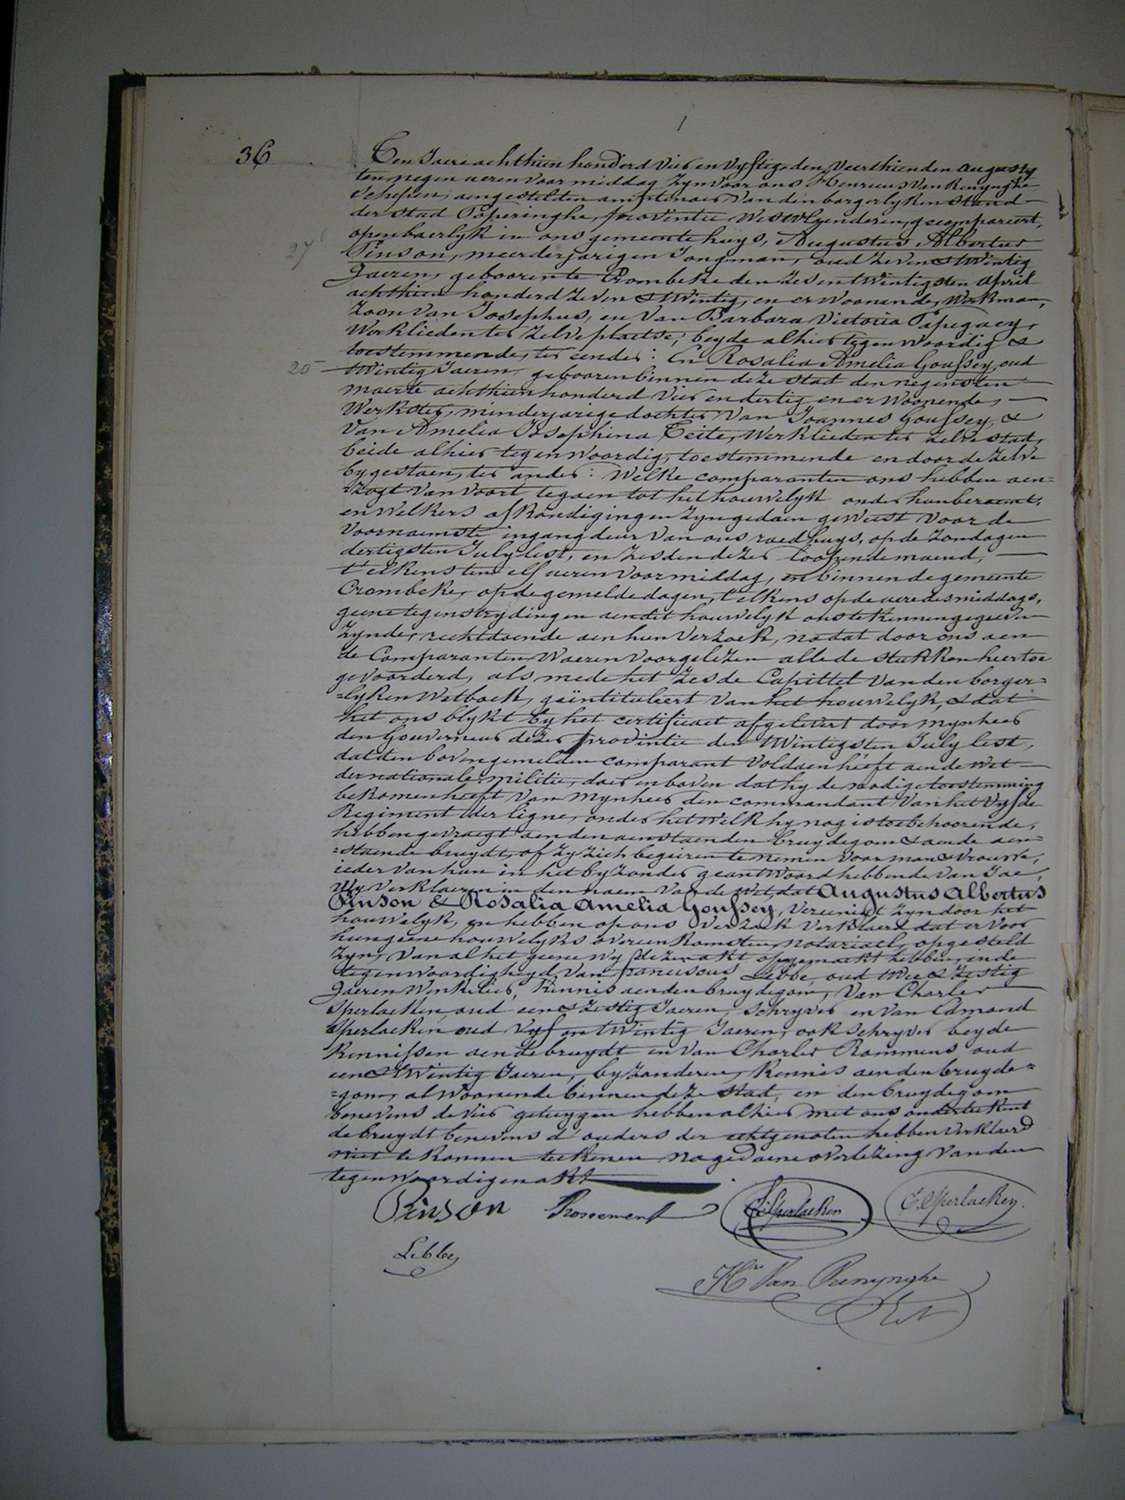 36
Ten Jaere achthien honderd vier en vyftig, den veerthienden augusty
ten negen ueren voormiddag zyn voor ons Henricus Van Renynghe
Schepen, aengestelden amptenaer van den borgerlyken stand
der stad Poperinghe, provintie Westvlaenderen, gecompareert,
openbaerlyk in ons gemeentehuys, Augustus Albertus
27
Pinson, meerderjarigen Jongman, oud zeven & twintig
Jaeren, gebooren te Crombeke den zes en twintigsten april
achthien honderd zeven & twintig, en er woonende, Werkman,
Zoon van Josephus, en van Barbara Victoria Papegaey,
Werklieden ter zelve plaetse, beyde alhier tegenwoordig &
toestemmende, ter eender: En Rosalia Amelia Goussey, oud
20
twintig Jaeren, gebooren binnen deze stad den negensten
maerte achthien honderd vier en dertig en er woonende,
Werkster, minderjarige dochter van Joannes Goussey, &
van Amelia Josephina Teite, Werklieden ter zelve stad,
beide alhier tegenwoordig, toestemmende en door dezelve
bygestaen, ter ander: Welke comparanten ons hebben aen=
=zogt van voort tegaen tot het houwelyk onder hun beraemt,
en welkers afkondigingen zyn gedaen geweest voor de
voornaemste ingangdeur van ons raedhuys, op de zondagen
dertigsten July lest, en zesden dezer loopende maend,
t'elkens ten elf ueren voormiddag, en binnen de gemeente
Crombeke, op de gemelde dagen, t'elkens op de uere des middags,
geene tegenstrydingen aen dit houwelyk ons te kennen gegeven
zynde, rechtdoende aen hun verzoek, nadat door ons aen
de Comparanten waeren voorgelezen alle de stukken hiertoe
gevoorderd, als mede het zesde Capittel van den borger=
=lyken Wetboek, geïntituleert van het houwelyk, & dat
het ons blykt by het certificaet afgelevert door mynheer
den Gouverneur dezer provintie den twintigsten July lest,
dat den bovengemelden comparant voldaen heeft aen de Wet
der nationale militie, daer en boven dat hy de nodige toestemming
bekomen heeft van mynheer den commandant van het vyfde
Regiment der ligne, onder het welk hy nog is toebehoorende,
hebben gevraegt aen den aenstaenden bruydegom & aen de aen=
=staende bruydt, of zy zich begeeren te nemen voor man & vrouw,
ieder van hun in het byzonder geantwoord hebbende van Jae,
Wy verklaeren in den naem van de wet, dat Augustus Albertus
Pinson & Rosalia Amelia Goussey, vereenigt zyn door het
houwelyk, en hebben op ons verzoek verklaerd dat er voor
hun geene houwelyks overeenkomsten, notariael, opgesteld
zyn, van al het geene wy deze akt opgemaekt hebben, in de
tegenwoordigheyd van franciscus Lebbe, oud twee & zestig
Jaeren Winkelier, kennis aen den bruydegom, van Charles
Sperlaeken, oud een & zestig Jaeren, Schryver en van Edmond
Sperlaeken oud vyf en twintig Jaeren, ook Schryver beyde
kennissen aen de bruydt en van Charles Rommens oud
een & twintig Jaeren, byzonderen, kennis aen den bruyde=
=gom, al woonende binnen deze stad, en den bruydegom
benevens de vier getuygen hebben alhier met ons onderteekent
de bruydt benevens d'ouders der echtgenoten hebben verklaerd
niet te konnen teekenen na gedaene overlezing van den
tegenwoordigen akt
Pinson
C. Sperlaeken
E. Sperlaeken
Lebbe
Hri Van Renynghe